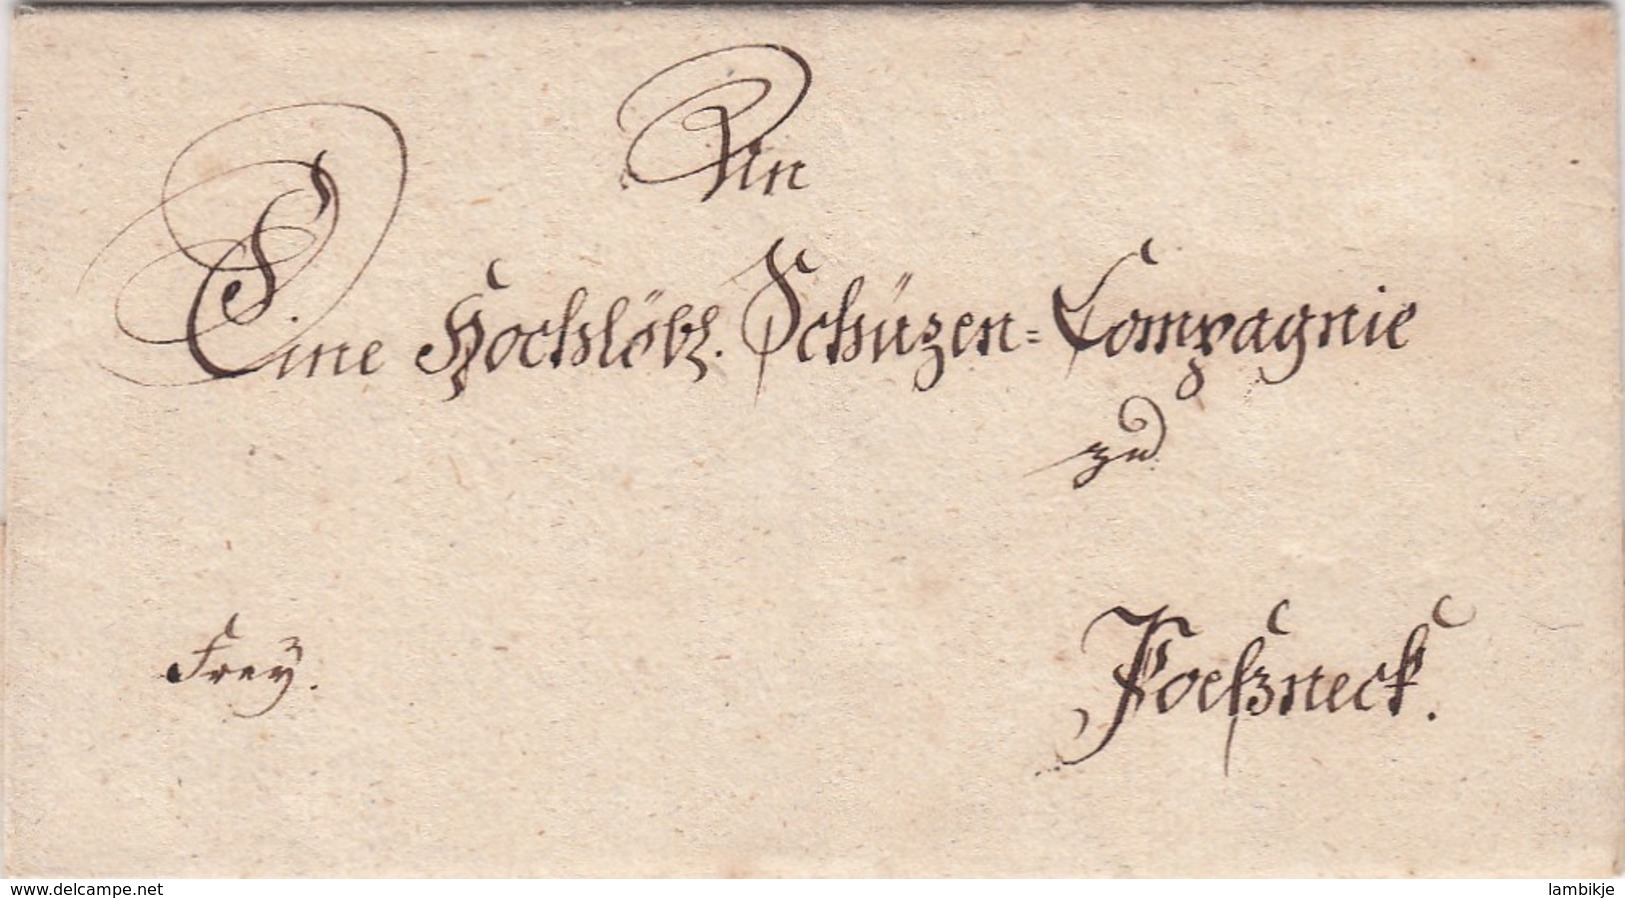 An
Eine Hochlöbl. Schüzen=Compagnie
zu
Poeßneck.
Frey.
www.delcampe.net
lambikje